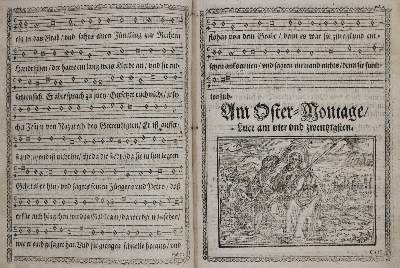 ein in das Grab / und sahen einen Jüngling zur Rechten
Hand sitzen / der hatte ein lang weis Kleid an / und sie ent-
satzten sich. Er aber sprach zu jnen / Entsetzet euch nicht / jr su-
chet Jesum von Nazareth den Gecreutzigten / Er ist aufer-
standen / und ist nicht hie, sihe da die stet, da sie jn hin legten
Gehet aber hin / und saget seinen Jüngern und Petro / daß
er für euch hingehen wird in Galileam / da werdet jr jn sehen /
wie er euch gesaget hat. Und sie giengen schnelle heraus / und
flohen von dem Grabe / denn es war sie zittern und ent-
setzen ankommen / und sagten niemand nichts / denn sie furch-
ten sich.
Am Oster-Montage /
Luce am vier und zwentzigsten.